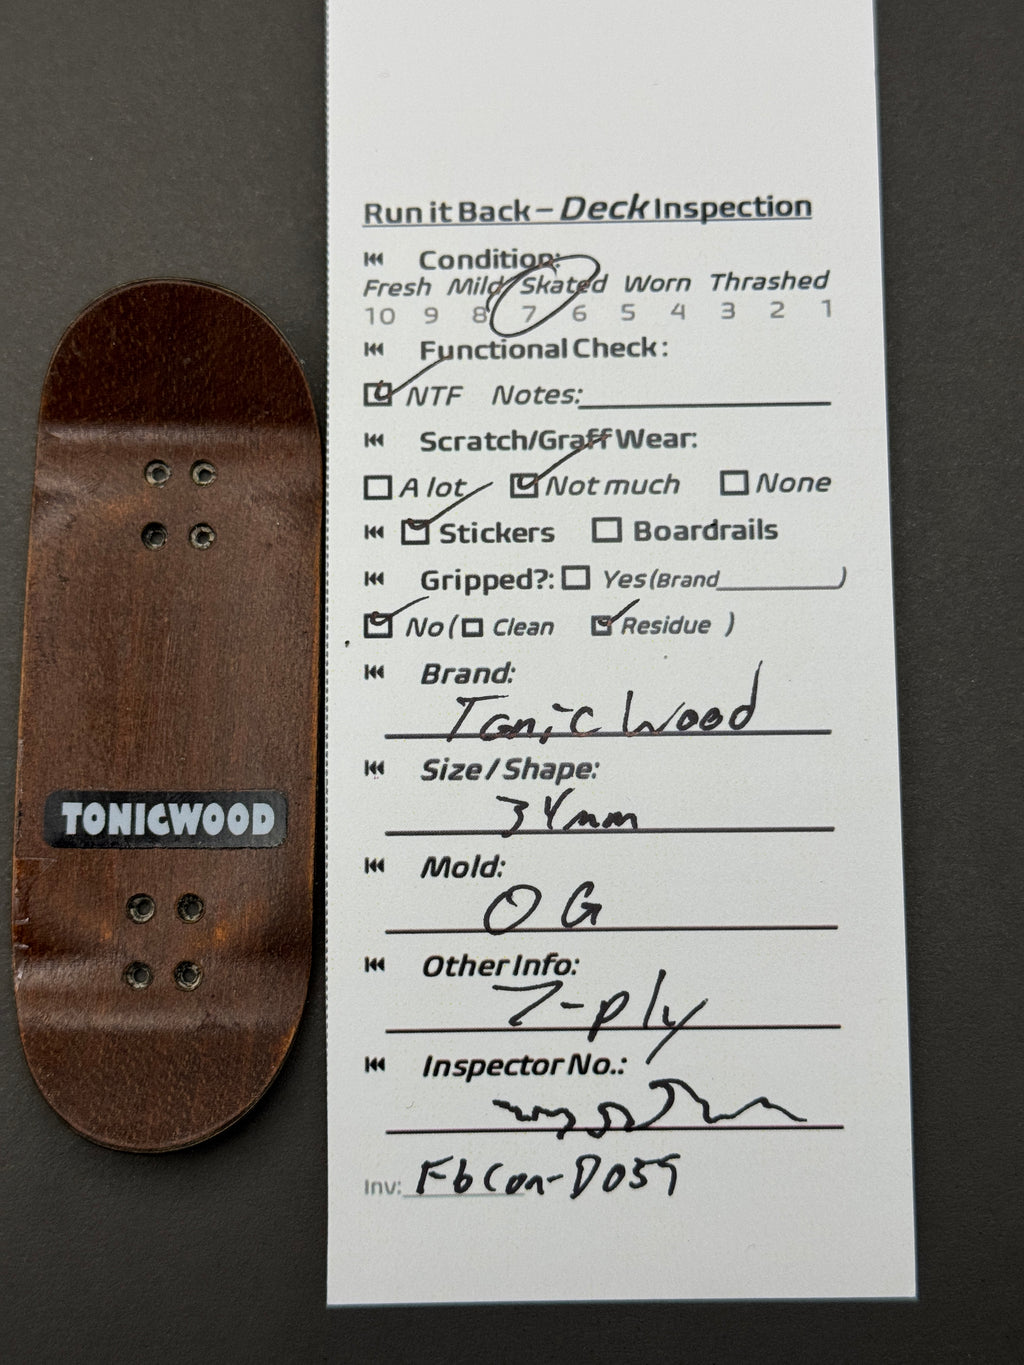 TONICWOOD
Run it Back – Deck Inspection
Condition:
Fresh Mild Skated Worn Thrashed
10 9 8 7 6 5 4 3 2 1
Functional Check:
NTF Notes:
Scratch/Graff Wear:
A lot Not much None
Stickers Boardrails
Gripped?: Yes (Brand )
No ( Clean Residue )
Brand:
Tonic Wood
Size / Shape:
34mm
Mold:
OG
Other Info:
7-ply
Inspector No.:
Inv: FbCon-D059